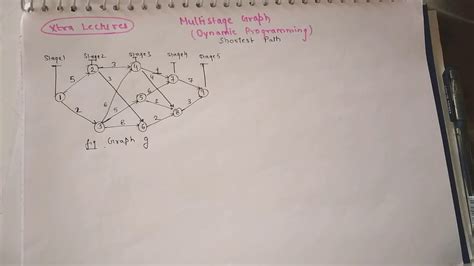 Xtra Lectures
Multistage Graph
(Dynamic Programming)
Shortest Path
Stage1 Stage2 Stage3 Stage4 Stage5
2 3 4 1 7
5 3 4 7
1 6 5 9
2 5 8 3
3 8 6 2
fig. Graph g